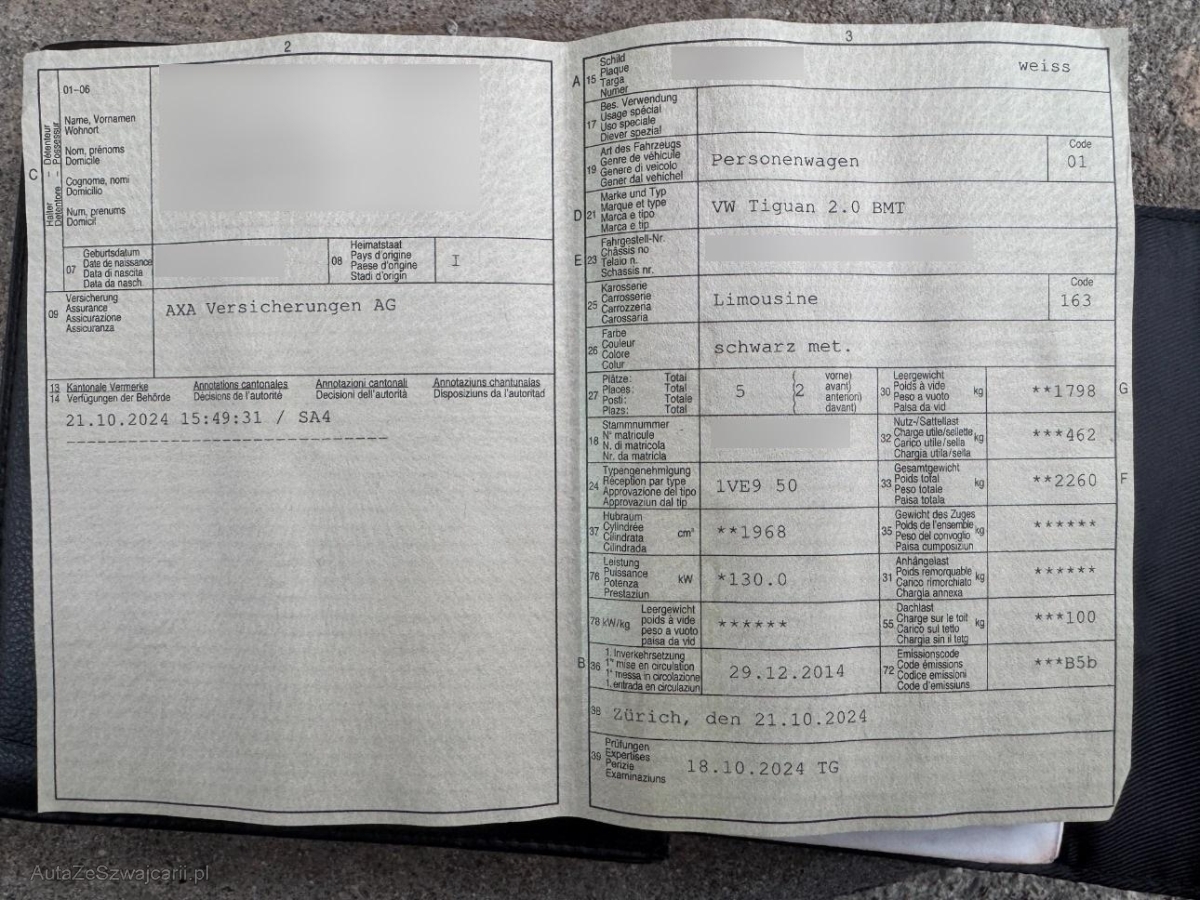 2
01-06
C
Halter – Détenteur
Detentore – Possessur
Name, Vornamen
Wohnort
Nom, prénoms
Domicile
Cognome, nomi
Domicilio
Num, prenums
Domicil
07
Geburtsdatum
Date de naissance
Data di nascita
Data da nasch.
08
Heimatstaat
Pays d'origine
Paese d'origine
Stadi d'origin
I
09
Versicherung
Assurance
Assicurazione
Assicuranza
AXA Versicherungen AG
13 Kantonale Vermerke Annotations cantonales Annotazioni cantonali Annotaziuns chantunalas
14 Verfügungen der Behörde Décisions de l'autorité Decisioni dell'autorità Disposiziuns da l'autoritad
21.10.2024 15:49:31 / SA4
3
A 15
Schild
Plaque
Targa
Numer
weiss
17
Bes. Verwendung
Usage spécial
Uso speciale
Diever spezial
19
Art des Fahrzeugs
Genre de véhicule
Genere di veicolo
Gener dal vehichel
Personenwagen
Code
01
D 21
Marke und Typ
Marque et type
Marca e tipo
Marca e tip
VW Tiguan 2.0 BMT
E 23
Fahrgestell-Nr.
Châssis no
Telaio n.
Schassis nr.
25
Karosserie
Carrosserie
Carrozzeria
Carossaria
Limousine
Code
163
26
Farbe
Couleur
Colore
Colur
schwarz met.
27
Plätze: Total
Places: Total
Posti: Totale
Plazs: Total
5
(2
vorne)
avant)
anteriori)
davant)
30
Leergewicht
Poids à vide
Peso a vuoto
Paisa da vid
kg
**1798
G
18
Stammnummer
N° matricule
N. di matricola
Nr. da matricla
32
Nutz-/Sattellast
Charge utile/sellette
Carico utile/sella
Chargia utila/sella
kg
***462
24
Typengenehmigung
Réception par type
Approvazione del tipo
Approvaziun dal tip
1VE9 50
33
Gesamtgewicht
Poids total
Peso totale
Paisa totala
kg
**2260
F
37
Hubraum
Cylindrée
Cilindrata
Cilindrada
cm³
**1968
35
Gewicht des Zuges
Poids de l'ensemble
Peso del convoglio
Paisa cumposiziun
kg
******
76
Leistung
Puissance
Potenza
Prestaziun
kW
*130.0
31
Anhängelast
Poids remorquable
Carico rimorchiato
Chargia annexa
kg
******
78 kW/kg
Leergewicht
poids à vide
peso a vuoto
paisa da vid
******
55
Dachlast
Charge sur le toit
Carico sul tetto
Chargia sin il tetg
kg
***100
B 36
1. Inverkehrsetzung
1re mise en circulation
1a messa in circolazione
1. entrada en circulaziun
29.12.2014
72
Emissionscode
Code émissions
Codice emissioni
Code d'emissiuns
***B5b
38
Zürich, den 21.10.2024
39
Prüfungen
Expertises
Perizia
Examinaziuns
18.10.2024 TG
AutaZeSzwajcarii.pl